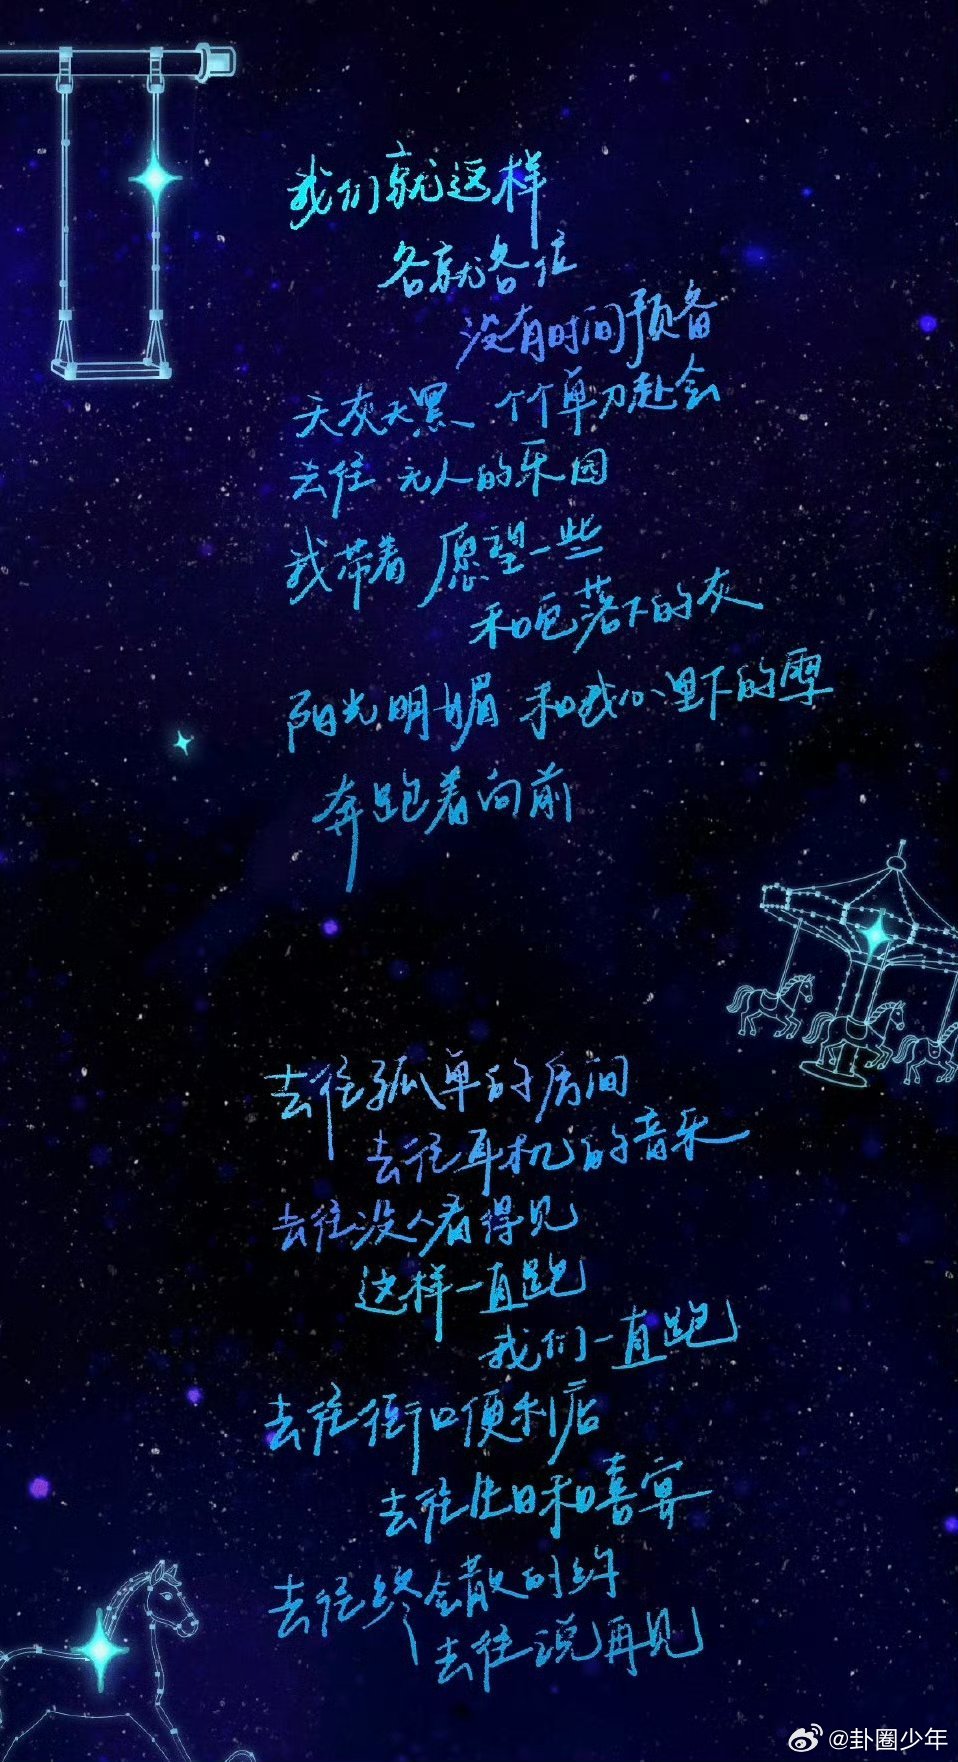 我们就这样
各就各位
没有时间预备
天灰天黑 个个单刀赴会
去往 无人的乐园
我带着 愿望一些
和包落下的灰
阳光明媚 和我心里下的雪
奔跑着向前
去往孤单的房间
去往耳机的音乐
去往没人看得见
这样一直跑
我们一直跑
去往街口便利店
去往生日和喜宴
去往终会散的约
去往说再见
@卦圈少年